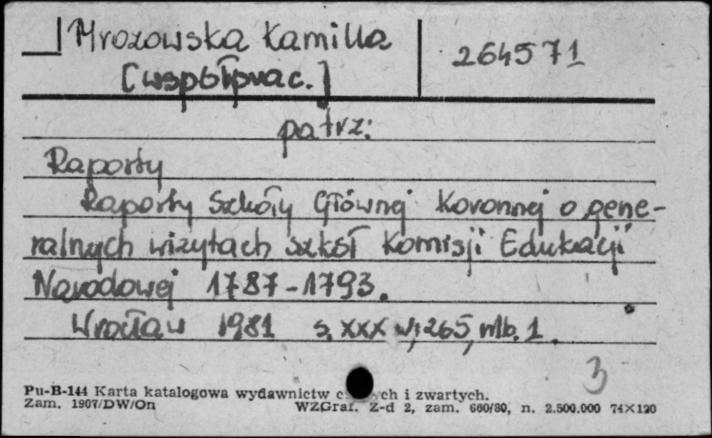 Mrozowska Kamilla
264571
[współprac.]
patrz:
Raporty
Raporty Szkoły Głównej Koronnej o gene-
ralnych wizytach szkół Komisji Edukacji
Narodowej 1787-1793.
Wrocław 1981 s. XXX w, 265, nlb. 1.
3
Pu-B-144 Karta katalogowa wydawnictw ch i zwartych.
Zam. 1907/DW/On
WZGraf. Z-d 2, zam. 660/80, n. 2.500.000 74×120